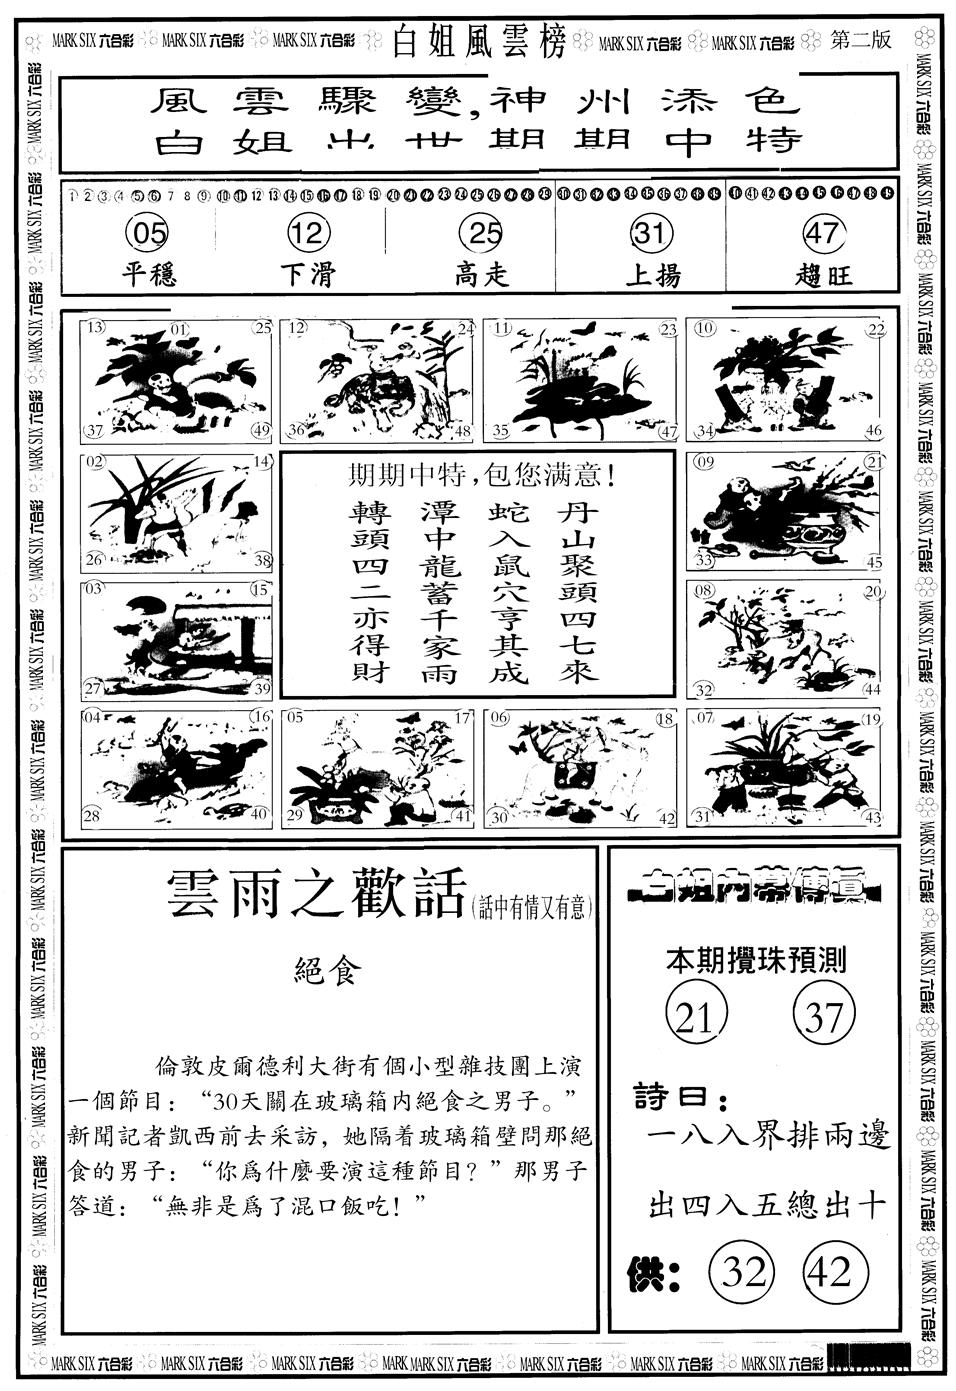 MARK SIX 六合彩 MARK SIX 六合彩 MARK SIX 六合彩 白姐風雲榜 MARK SIX 六合彩 MARK SIX 六合彩 第二版
風雲驟變,神州添色
白姐出世期期中特
1 2 3 4 5 6 7 8 9 10 11 12 13 14 15 16 17 18 19 20 21 22 23 24 25 26 27 28 29 30 31 32 33 34 35 36 37 38 39 40 41 42 43 44 45 46 47 48 49
05 12 25 31 47
平穩 下滑 高走 上揚 趨旺
13 01 25 12 24 11 23 10 22
37 49 36 48 35 47 34 46
02 14 09 21
26 38 33 45
03 15 08 20
27 39 32 44
04 16 05 17 06 18 07 19
28 40 29 41 30 42 31 43
期期中特,包您满意!
丹山聚頭四七來
蛇入鼠穴亨其成
潭中龍蓄千家雨
轉頭四二亦得財
雲雨之歡話(話中有情又有意)
絕食
倫敦皮爾德利大街有個小型雜技團上演
一個節目：“30天關在玻璃箱内絕食之男子。”
新聞記者凱西前去采訪，她隔着玻璃箱壁問那絕
食的男子：“你爲什麼要演這種節目？”那男子
答道：“無非是爲了混口飯吃！”
白姐内幕傳真
本期攪珠預測
21 37
詩曰：
一八入界排兩邊
出四入五總出十
供： 32 42
MARK SIX 六合彩 MARK SIX 六合彩 MARK SIX 六合彩 MARK MARK SIX 六合彩 MARK SIX 六合彩 MARK SIX 六合彩 MARK SIX 六合彩